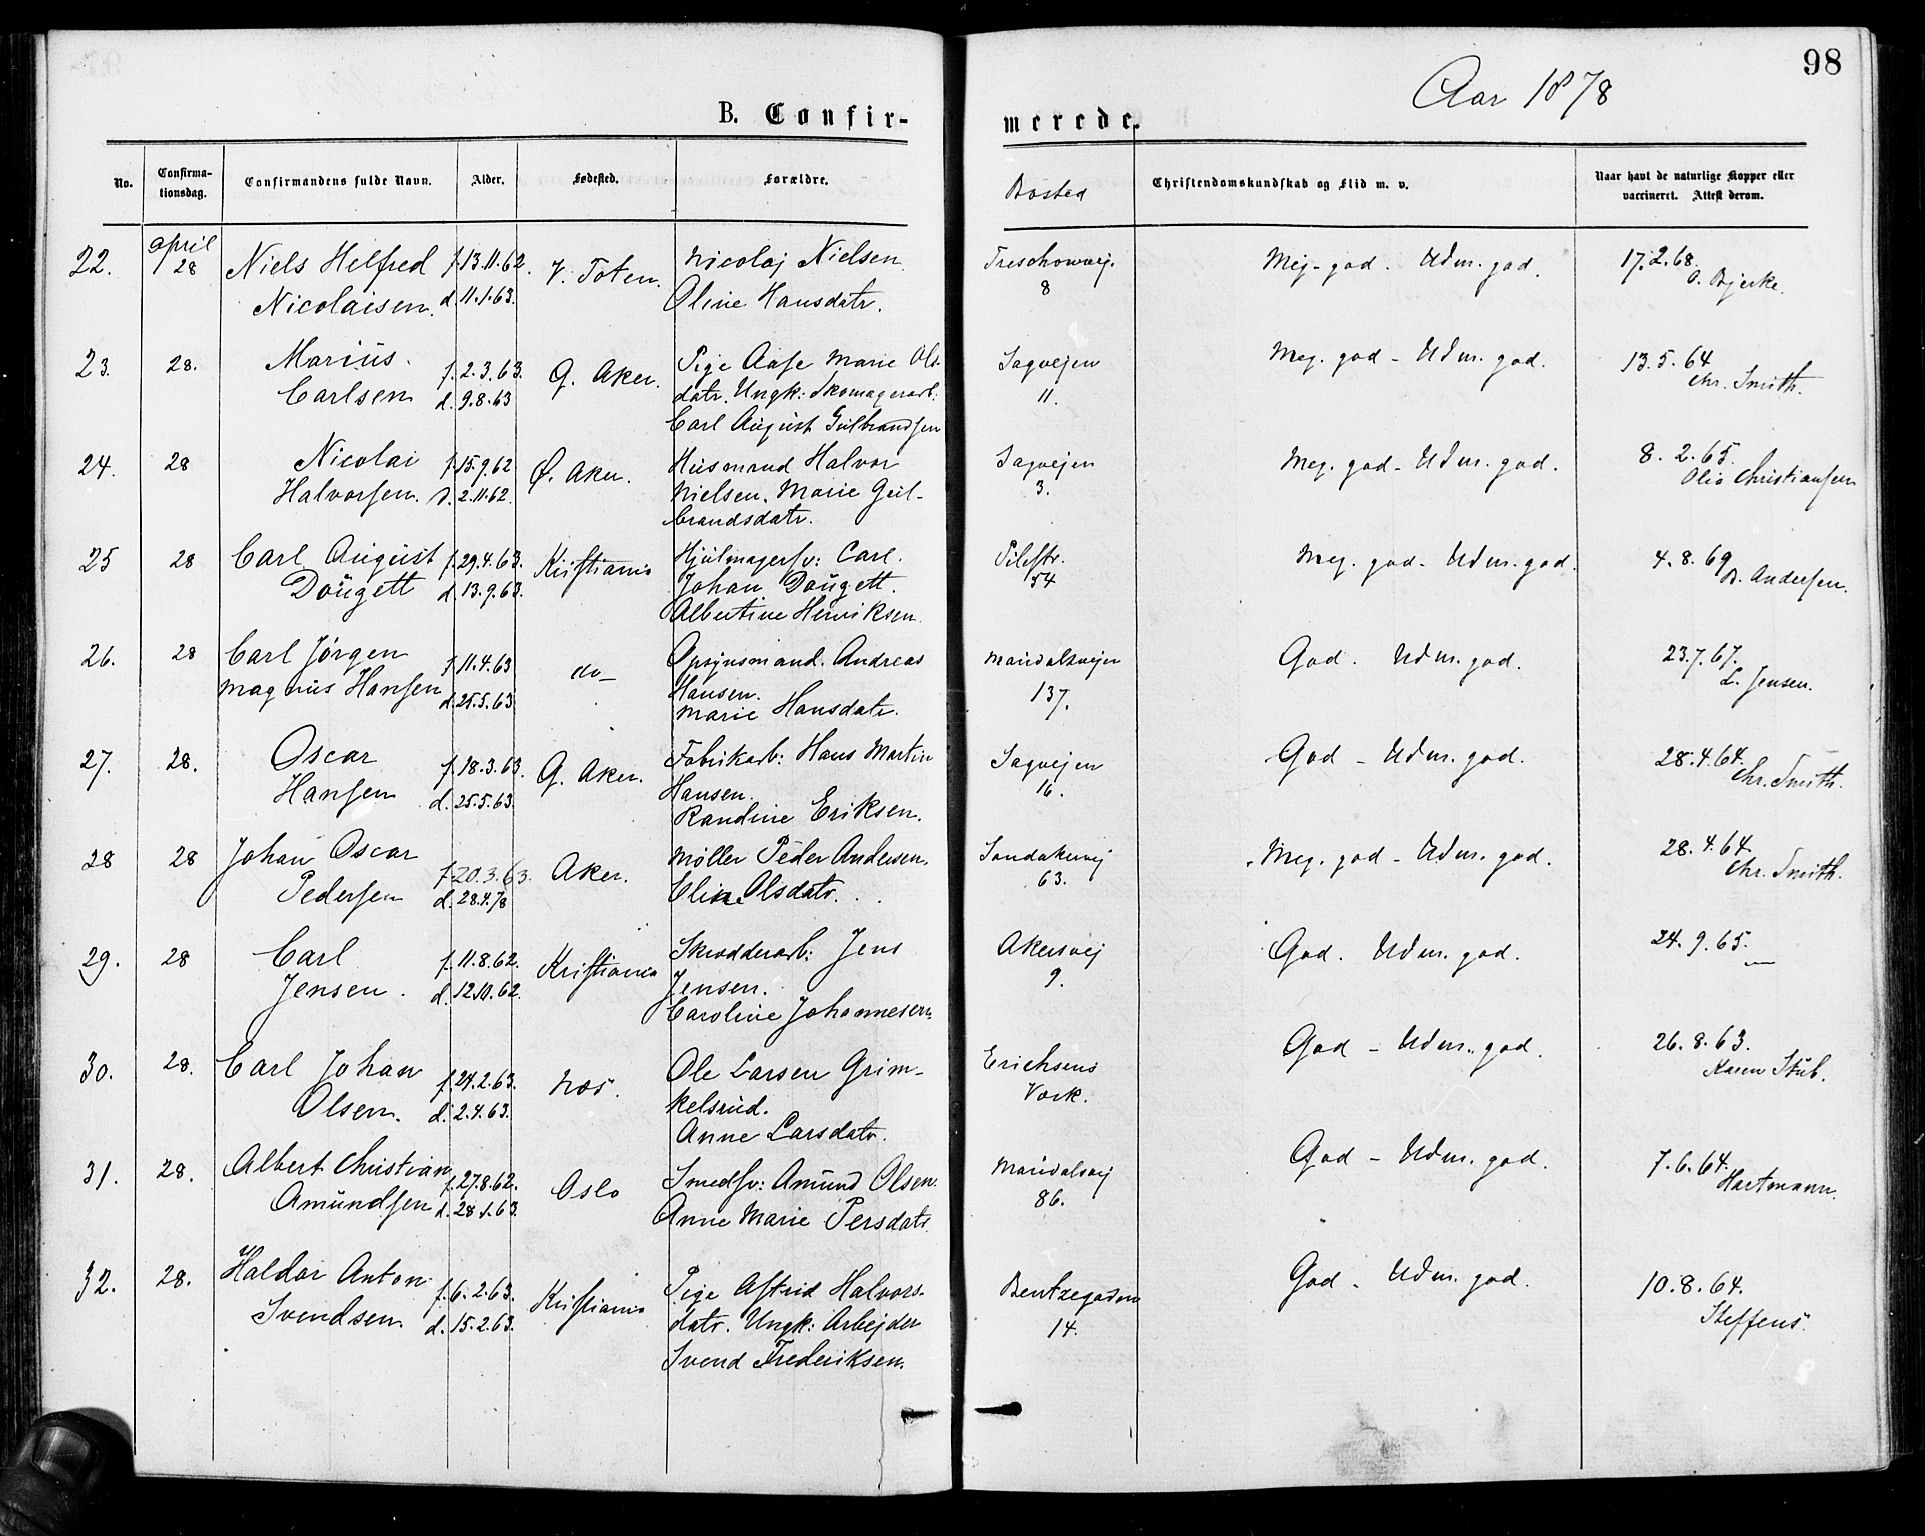 98
Aar 1878
B. Confirmerede.
No. | Confirmationsdag. | Confirmandens fulde Navn. | Alder. | Fødested. | Forældre. | Bosted | Christendomskundskab og Flid m. v. | Naar havt de naturlige Kopper eller vaccineret. Attest derom.
22. | april 28 | Niels Helfred | f. 13.11.62. | V. Toten. | Nicolaj Nielsen | Treschowvej. | Meg. god. Udm. god. | 17.2.68.
Nicolaisen. | d. 11.1.63. | Oline Hansdatr. | 8 | O. Bjerke.
23. | 28. | Marius | f. 2.3.63. | G. Aker. | Pige Aase Marie Ols- | Sagvejen | Meg. god - Udm. god. | 13.5.64
Carlsen | d. 9.8.63 | datr. Ungk: Skomagerarb: | 11. | Chr. Smith.
Carl August Gulbrandsen
24. | 28 | Nicolai | f. 15.9.62 | Ø. Aker. | Husmand Halvor | Sagvejen | Meg. god - Udm. god. | 8.2.65.
Halvorsen. | d. 2.11.62. | Nielsen. Marie Gul- | 3. | Christiansen
brandsdatr.
25 | 28 | Carl August | f. 29.4.63. | Kristiania | Hjulmagersv: Carl | Pilestr. | Meg. god - Udm. god. | 4.8.69
Dougett | d. 13.9.63. | Johan Dougett. | 54 | Andersen.
Albertine Henriksen
26. | 28 | Carl Jørgen | f. 11.4.63 | do - | Opsynsmand. Andreas | Maridalsvejen | God. Udm. god. | 23.7.67.
Magnus Hansen | d. 25.5.63 | Hansen. | 137. | L. Jensen.
Marie Hansdatr.
27. | 28. | Oscar | f. 18.3.63. | G. Aker. | Fabrikarb: Hans Martin | Sagvejen | God - Udm. god. | 28.4.64.
Hansen | d. 25.5.63. | Hansen. | 16. | Chr. Smith.
Randine Eriksen.
28 | 28 | Johan Oscar | f. 20.3.63. | Aker. | Møller Peder Andersen. | Sandakervej | Meg. god - Udm. god. | 28.4.64.
Pedersen | d. 28.4.78 | Eline Olsdatr. | 63. | Chr. Smith.
29. | 28 | Carl | f. 11.8.62. | Kristiania | Skrædderarb: Jens | Akersvej | God. Udm. god. | 24.9.65.
Jensen. | d. 12.10.62. | Jensen. | 9. | —
Caroline Johannesen.
30. | 28. | Carl Johan | f. 24.2.63. | Næs. | Ole Larsen Grim- | Erichsens | God - Udm. god. | 26.8.63.
Olsen. | d. 2.4.63. | kelsrud. | Værk. | Karen Stub.
Anne Larsdatr.
31. | 28. | Albert Christian | f. 27.8.62. | Oslo | Smedsv: Amund Olsen. | Maridalsvej | God - Udm. god. | 7.6.64.
Amundsen | d. 28.1.63. | Anne Marie Persdatr. | 86. | Hartmann.
32. | 28. | Haldor Anton | f. 6.2.63. | Kristiania | Pige Astrid Halvors- | Bentzegaden | God - Udm. god. | 10.8.64.
Svendsen. | d. 15.2.63. | datr. Ungk: Arbejder | 14. | Steffens.
Svend Frederiksen.